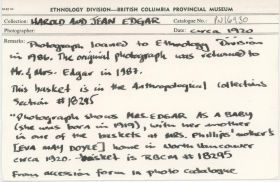 ETHNOLOGY DIVISION—BRITISH COLUMBIA PROVINCIAL MUSEUM
Collection: HAROLD AND JEAN EDGAR Catalogue No.: PN16930
Photographer: Date: circa 1920
Remarks: Photograph loaned to Ethnology Division
in 1986. The original photograph was returned to
Mr. & Mrs. Edgar in 1987.
This basket is in the Anthropological Collections
Section # 18295
"Photograph shows MRS. EDGAR AS A BABY
(she was born in 1919), with her mother
in one of the baskets at MRS. Phillips' mother's
[EVA MAY DOYLE] home in North Vancouver
circa 1920. basket is RBCM # 18295
From accession form in photo catalogue